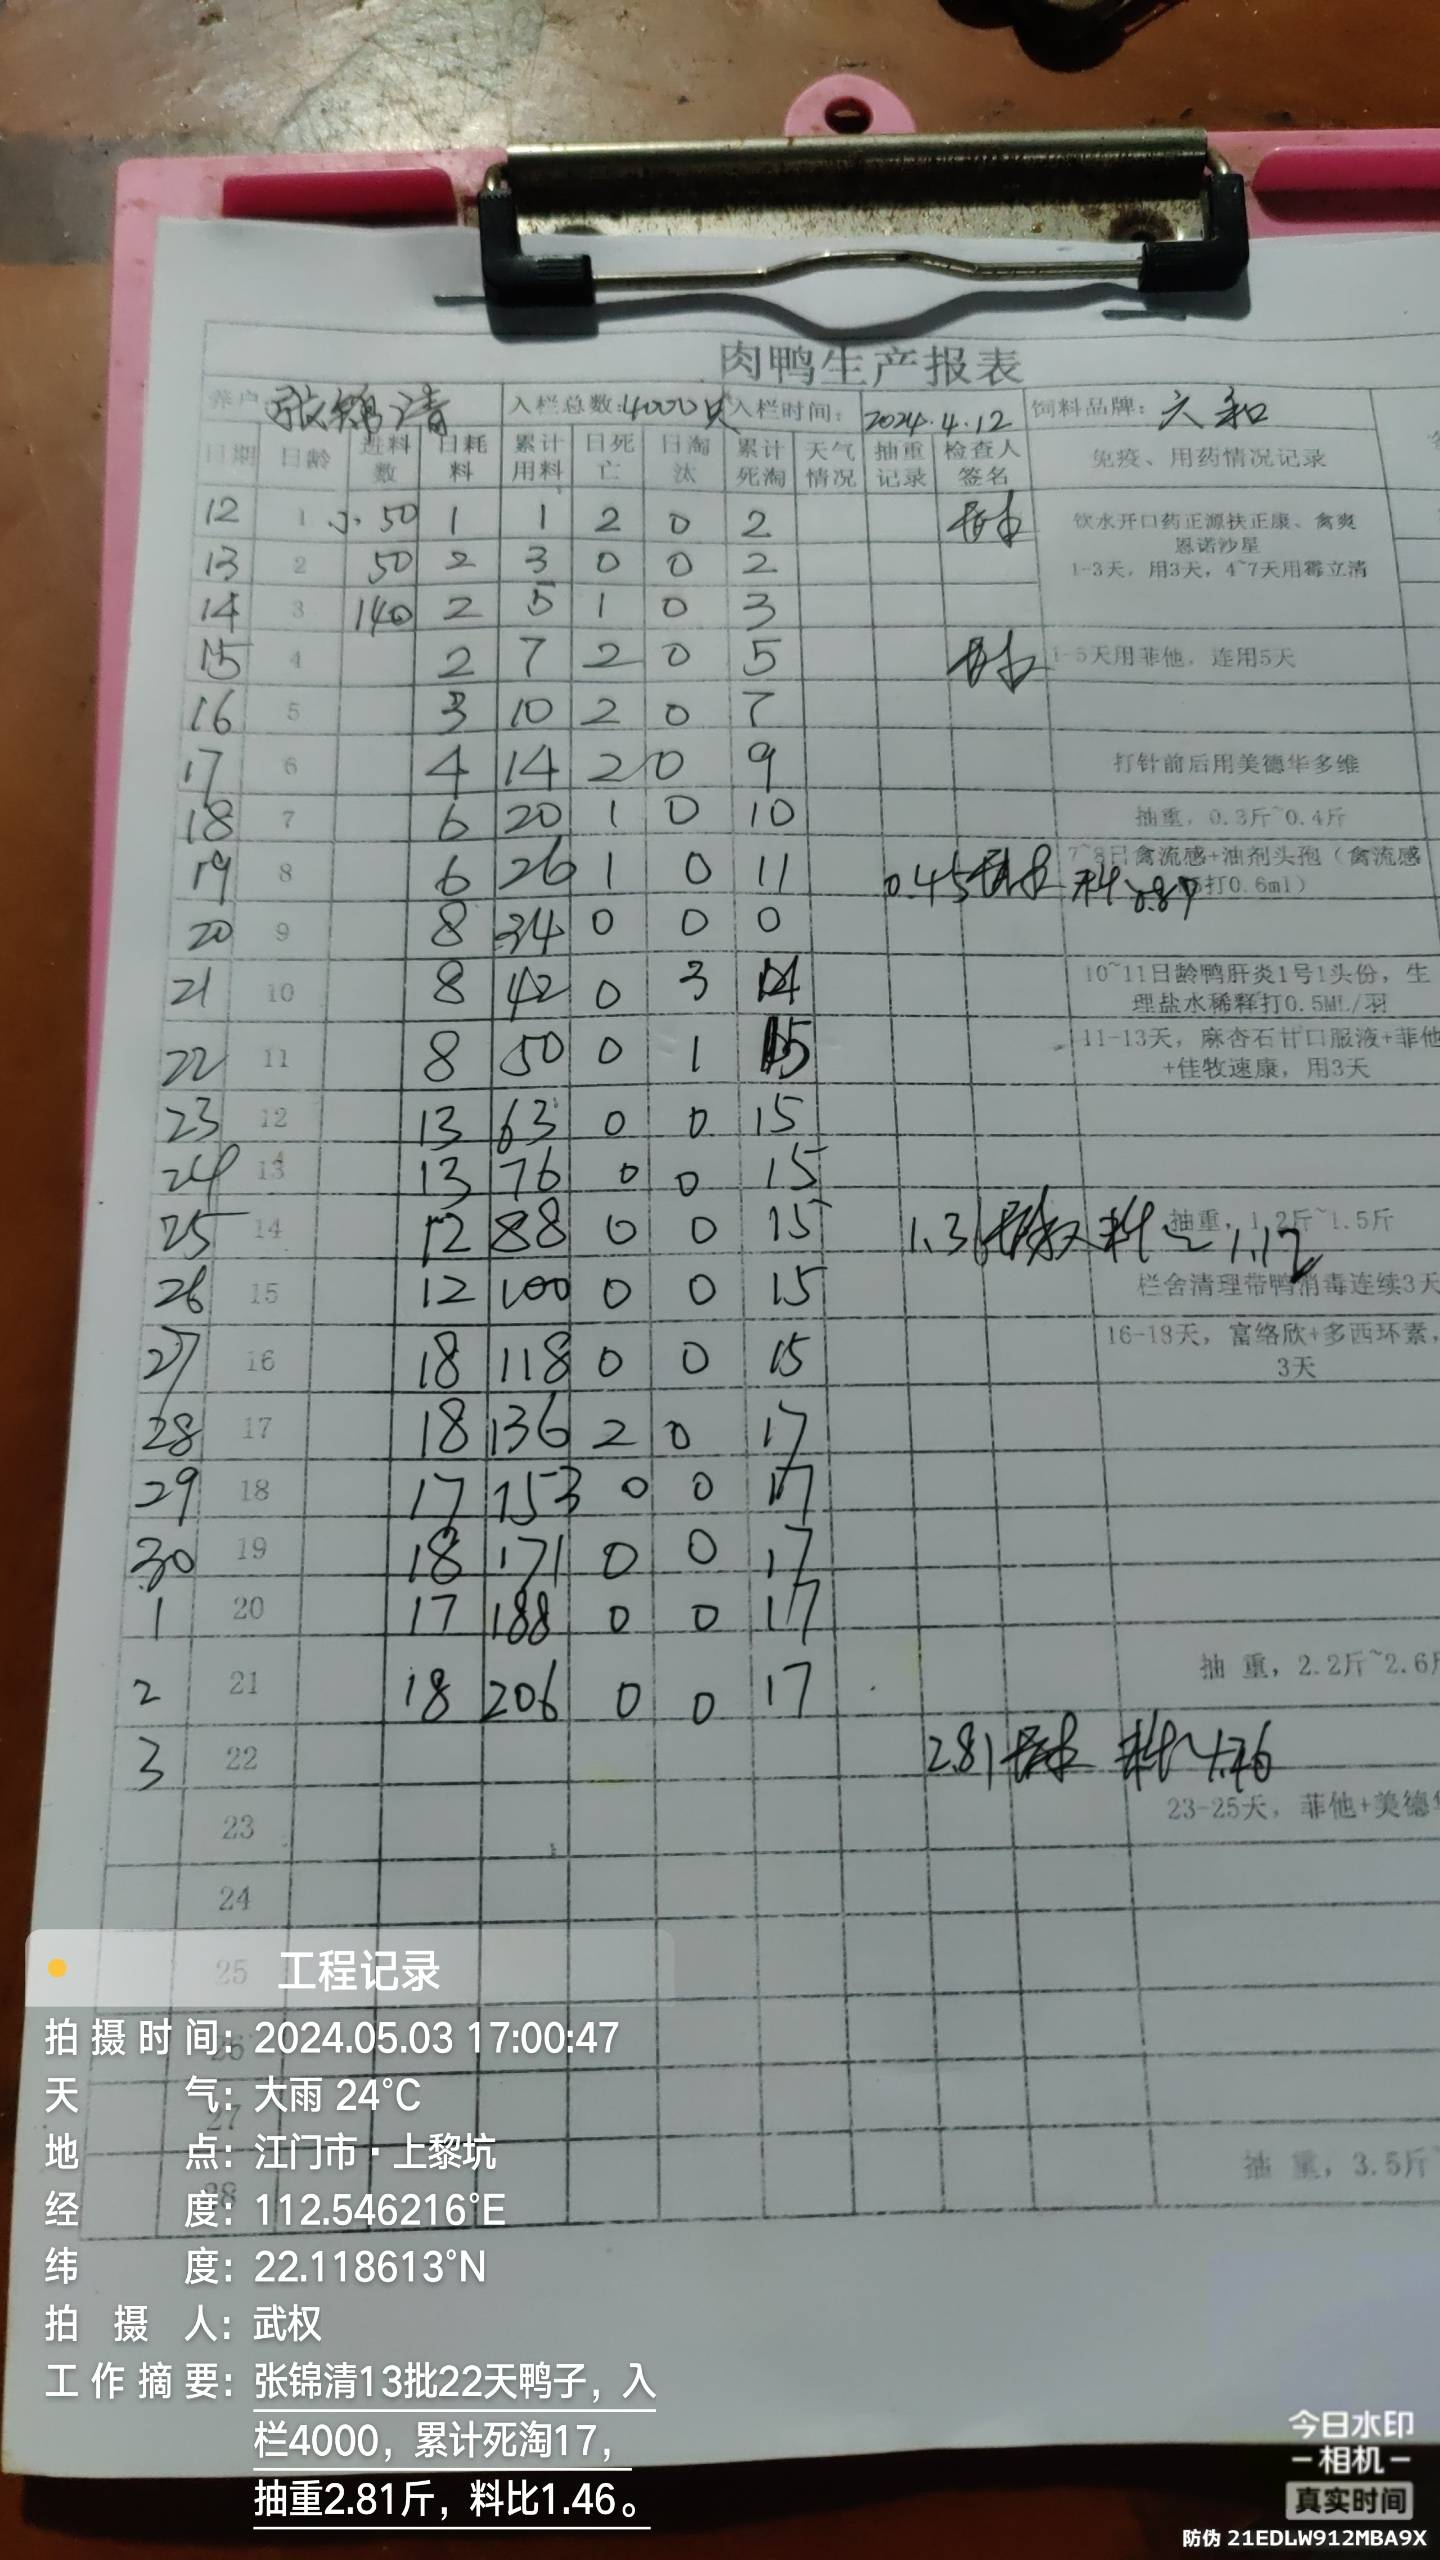 肉鸭生产报表
养户 张锦清 入栏总数:4000只 入栏时间: 2024.4.12 饲料品牌: 六和
日期 日龄 进料数 日耗料 累计用料 日死亡 日淘汰 累计死淘 天气情况 抽重记录 检查人签名 免疫、用药情况记录
12 1 小 50 1 1 2 0 2 饮水开口药正源扶正康、禽爽
恩诺沙星
13 2 50 2 3 0 0 2 1-3天，用3天，4~7天用霉立清
14 3 140 2 5 1 0 3
15 4 2 7 2 0 5 1-5天用菲他，连用5天
16 5 3 10 2 0 7
17 6 4 14 2 0 9 打针前后用美德华多维
18 7 6 20 1 0 10 抽重，0.3斤~0.4斤
19 8 6 26 1 0 11 0.45 料比0.87 7~8日禽流感+油剂头孢（禽流感
打0.6ml）
20 9 8 34 0 0 0
21 10 8 42 0 3 14 10~11日龄鸭肝炎1号1头份，生
理盐水稀释打0.5ML/羽
22 11 8 50 0 1 15 11-13天，麻杏石甘口服液+菲他
+佳牧速康，用3天
23 12 13 63 0 0 15
24 13 13 76 0 0 15
25 14 12 88 0 0 15 1.31 料比1.12 抽重，1.2斤~1.5斤
26 15 12 100 0 0 15 栏舍清理带鸭消毒连续3天
27 16 18 118 0 0 15 16-18天，富络欣+多西环素，
3天
28 17 18 136 2 0 17
29 18 17 153 0 0 17
30 19 18 171 0 0 17
1 20 17 188 0 0 17
2 21 18 206 0 0 17 抽 重，2.2斤~2.6斤
3 22 2.81 料比1.46
23 23-25天，菲他+美德华
24
25
26
27
28 抽 重，3.5斤~
工程记录
拍摄时间: 2024.05.03 17:00:47
天 气: 大雨 24°C
地 点: 江门市·上黎坑
经 度: 112.546216°E
纬 度: 22.118613°N
拍 摄 人: 武权
工作摘要: 张锦清13批22天鸭子，入
栏4000，累计死淘17，
抽重2.81斤，料比1.46。
今日水印
相机
真实时间
防伪 21EDLW912MBA9X